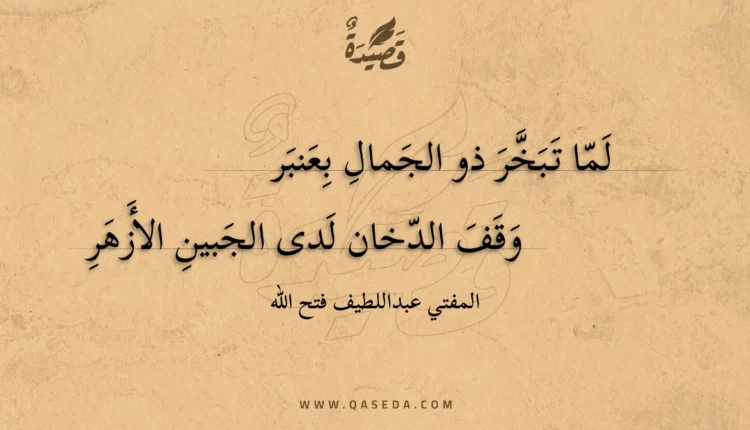 قَصِيدَةٌ
لَمّا تَبَخَّرَ ذو الجَمالِ بِعَنبَر
وَقَفَ الدّخان لَدى الجَبينِ الأَزهَرِ
المفتي عبداللطيف فتح الله
WWW.QASEDA.COM